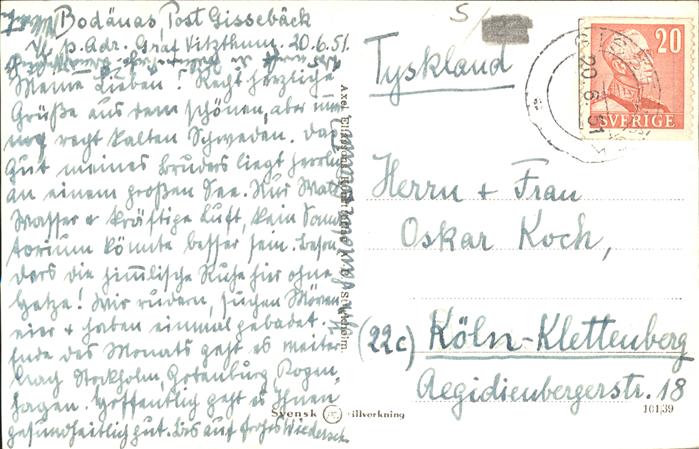 Bodänas, Post Gissebäck
p. Adr. Graf Vitzthum. 20.6.51.
Meine Lieben! Recht herzliche
Grüße aus dem schönen, aber immer
noch recht kalten Schweden. Das
Gut meines Bruders liegt herrlich
an einem großen See. Nur Wald
Wasser + kräftige Luft, kein Sana
torium könnte besser sein. Beson
ders die himmlische Ruhe hier ohne
Hetze! Wir rudern, suchen Möven
eier + haben einmal gebadet.
Ende des Monats geht es weiter
nach Stockholm, Gotenburg, Kopen-
hagen. Hoffentlich geht es Ihnen
gesundheitlich gut. Bis auf frohes Wiederseh
Axel Stockholm
Svensk tillverkning
101/39
S/
Tyskland
20
SVERIGE
20 6 51
Herrn + Frau
Oskar Koch,
(22c) Köln-Klettenberg
Aegidienbergerstr. 18